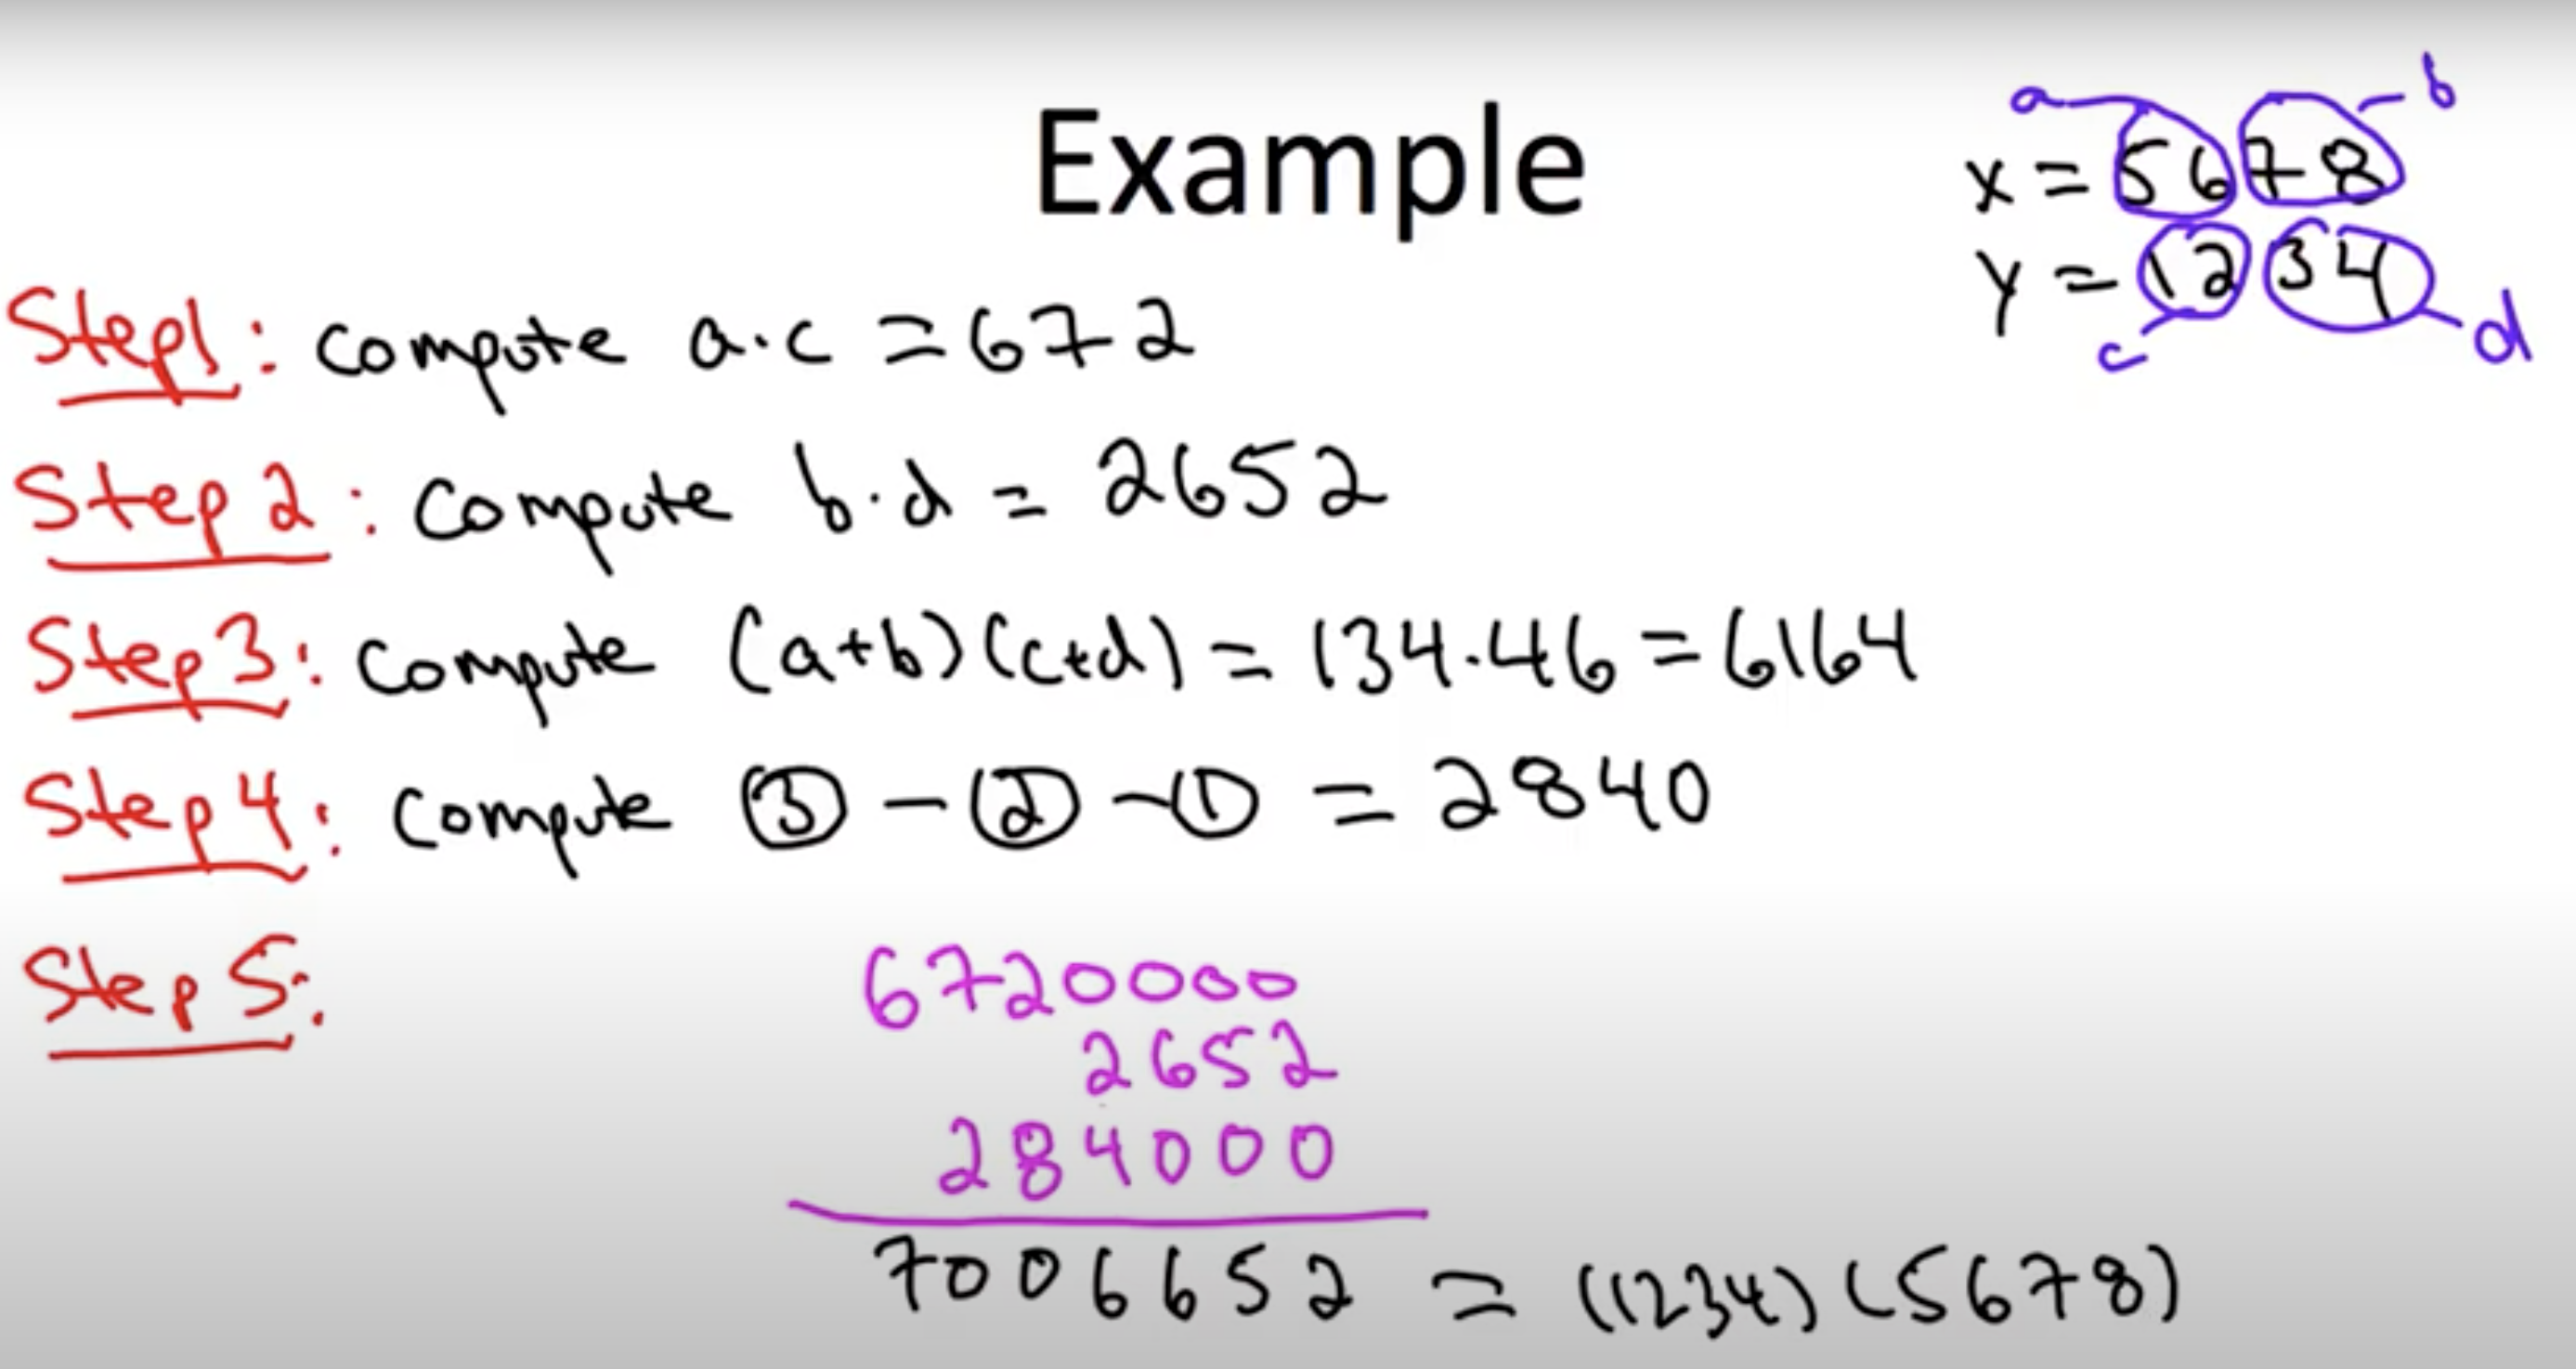 Example
a
b
x = 5678
y = 1234
c
d
Step1: compute a·c = 672
Step 2: compute b·d = 2652
Step 3: compute (a+b)(c+d) = 134·46 = 6164
Step 4: compute ③ - ② - ① = 2840
Step 5:
6720000
2652
284000
7006652 = (1234)(5678)